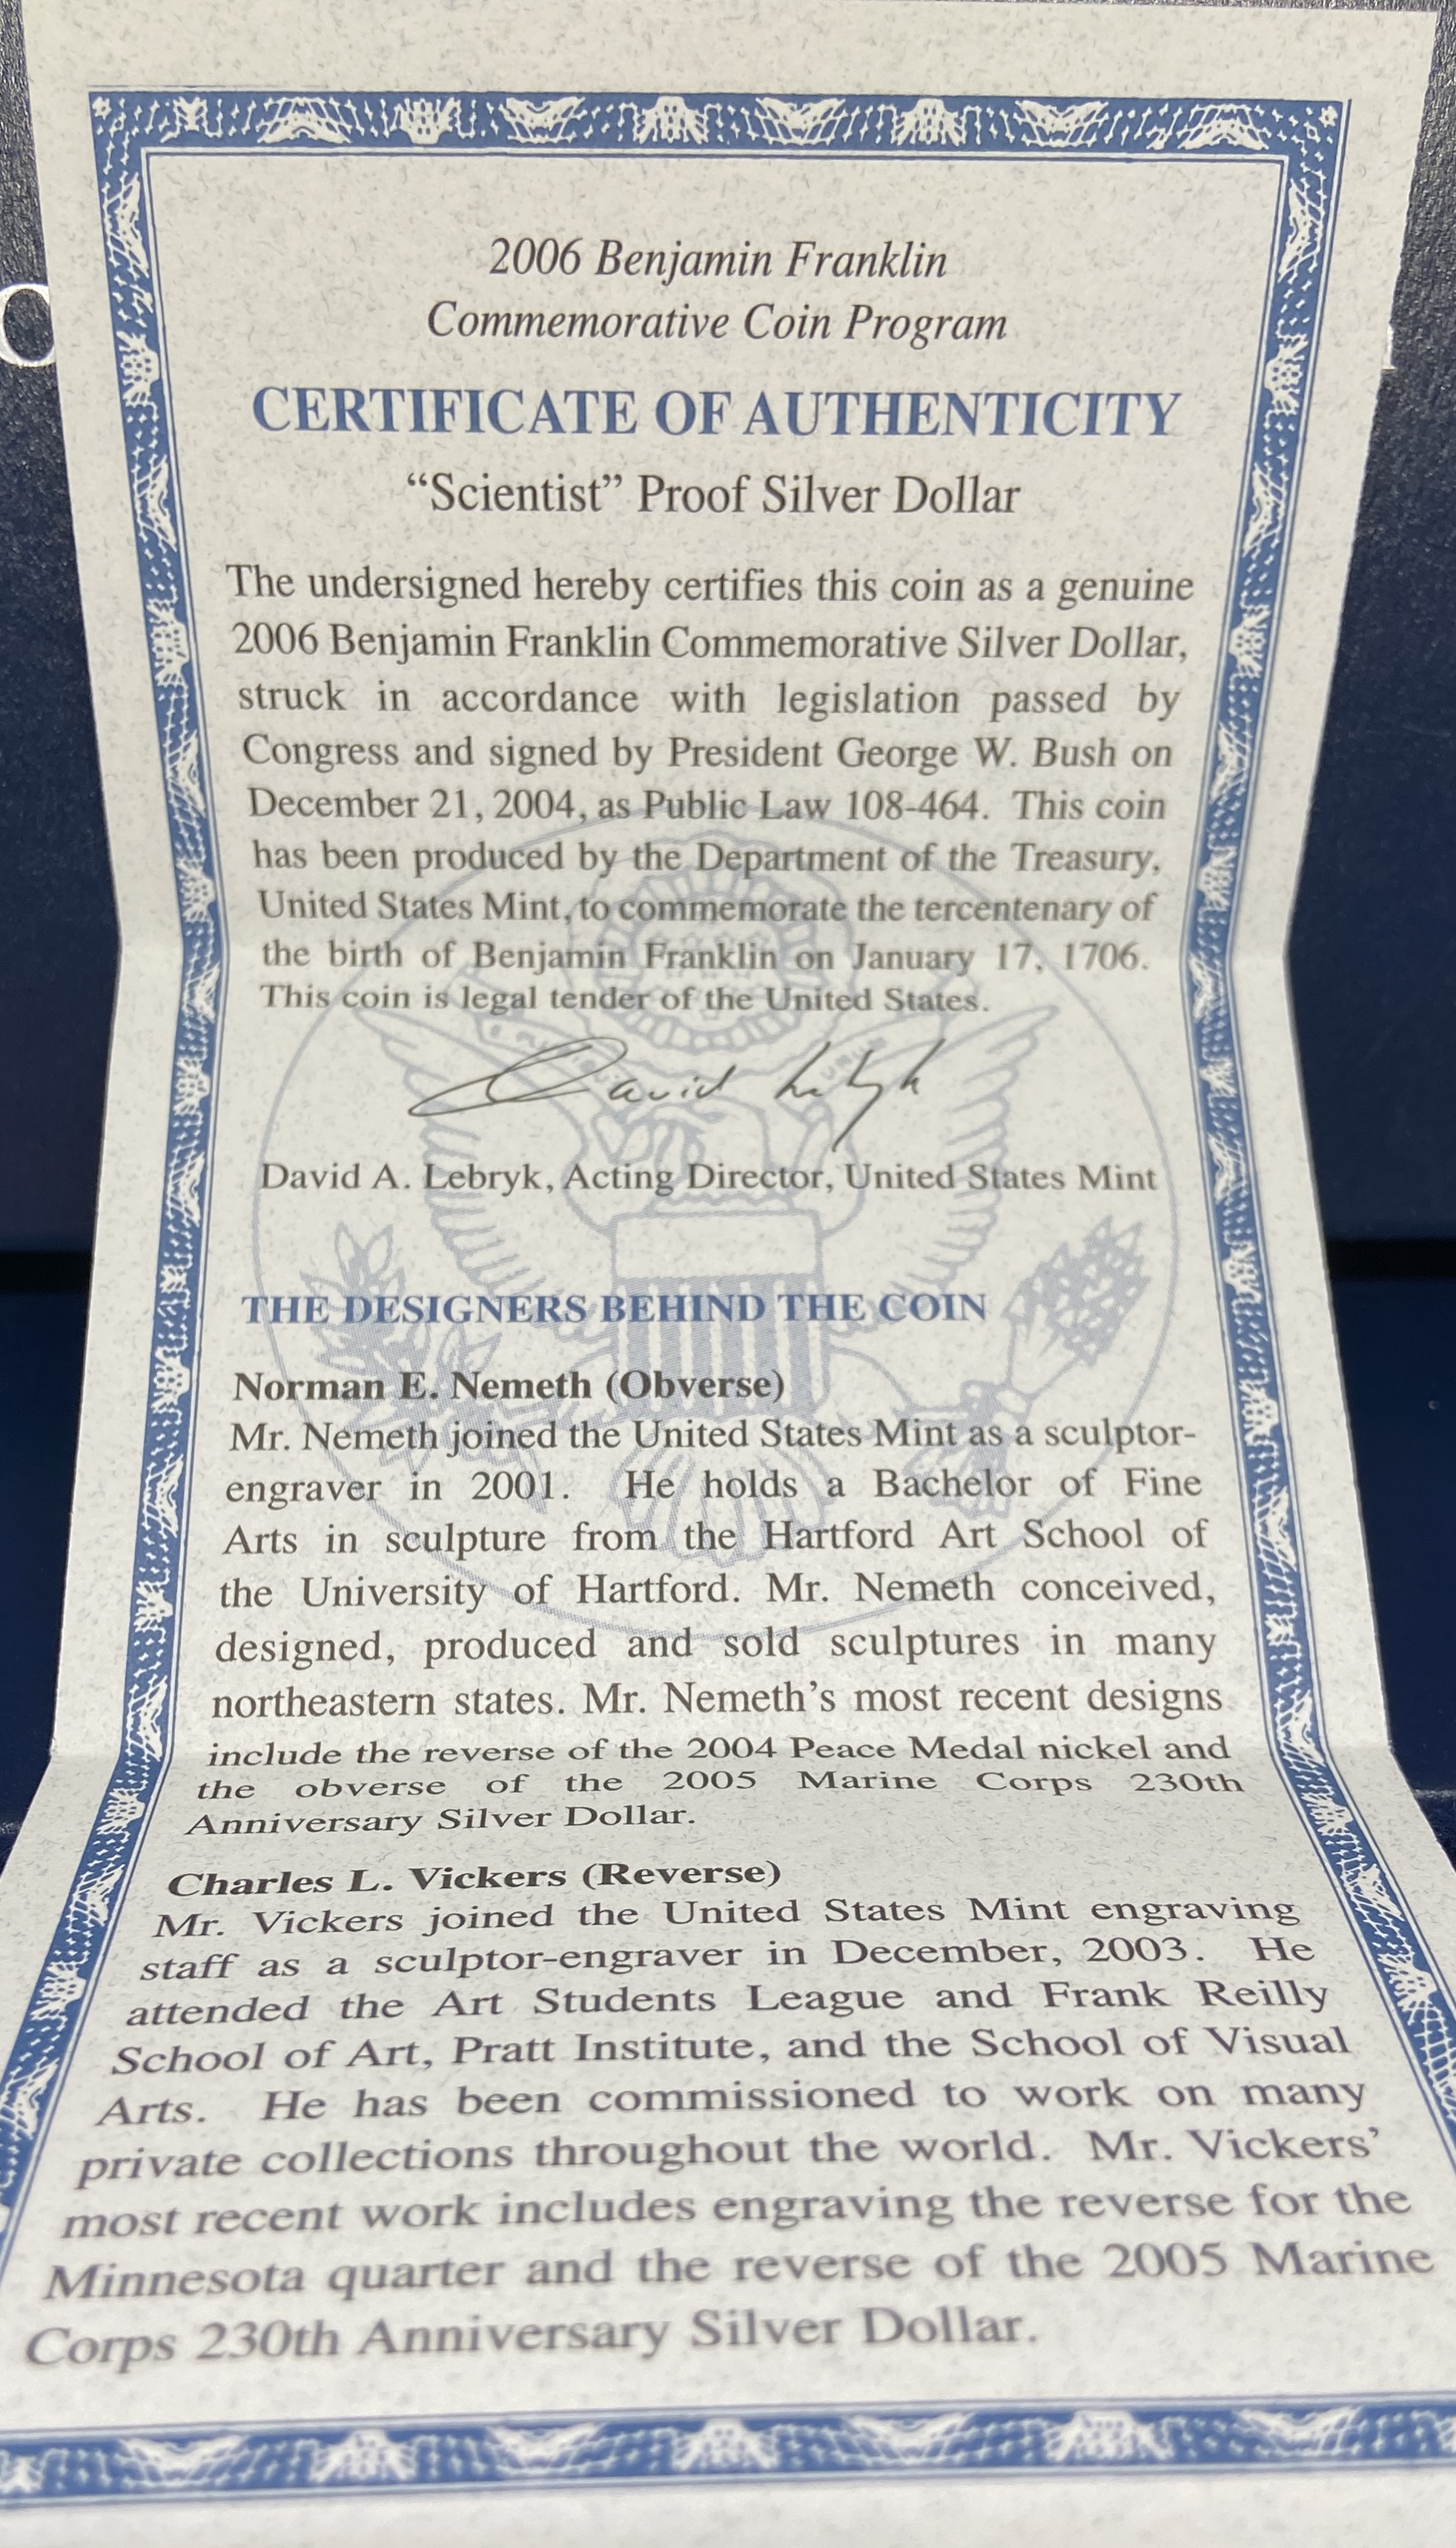 2006 Benjamin Franklin
Commemorative Coin Program
CERTIFICATE OF AUTHENTICITY
“Scientist” Proof Silver Dollar
The undersigned hereby certifies this coin as a genuine
2006 Benjamin Franklin Commemorative Silver Dollar,
struck in accordance with legislation passed by
Congress and signed by President George W. Bush on
December 21, 2004, as Public Law 108-464. This coin
has been produced by the Department of the Treasury,
United States Mint, to commemorate the tercentenary of
the birth of Benjamin Franklin on January 17, 1706.
This coin is legal tender of the United States.
David Lebryk
David A. Lebryk, Acting Director, United States Mint
THE DESIGNERS BEHIND THE COIN
Norman E. Nemeth (Obverse)
Mr. Nemeth joined the United States Mint as a sculptor-
engraver in 2001. He holds a Bachelor of Fine
Arts in sculpture from the Hartford Art School of
the University of Hartford. Mr. Nemeth conceived,
designed, produced and sold sculptures in many
northeastern states. Mr. Nemeth’s most recent designs
include the reverse of the 2004 Peace Medal nickel and
the obverse of the 2005 Marine Corps 230th
Anniversary Silver Dollar.
Charles L. Vickers (Reverse)
Mr. Vickers joined the United States Mint engraving
staff as a sculptor-engraver in December, 2003. He
attended the Art Students League and Frank Reilly
School of Art, Pratt Institute, and the School of Visual
Arts. He has been commissioned to work on many
private collections throughout the world. Mr. Vickers’
most recent work includes engraving the reverse for the
Minnesota quarter and the reverse of the 2005 Marine
Corps 230th Anniversary Silver Dollar.